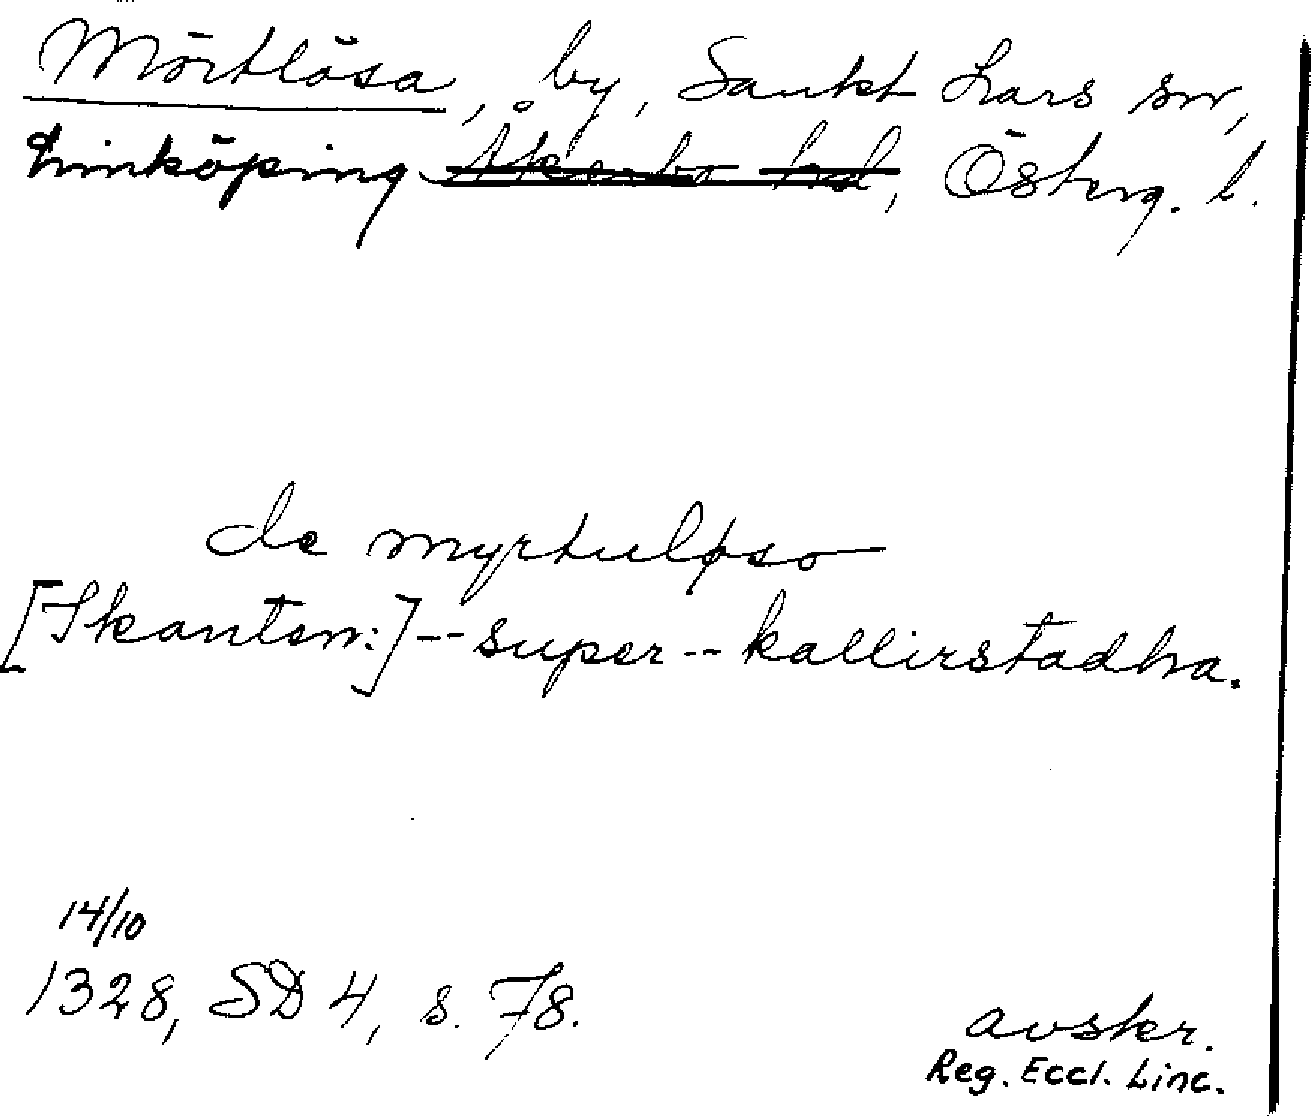 Mörtlösa, by, Sankt Lars sn,
Linköping Åkerbo hd, Österg. l.
de myrtuløso
[Skanten:] -- super -- kallirstadha.
14/10
1328, SD 4, s. 78.
avskr.
Reg. Eccl. Linc.